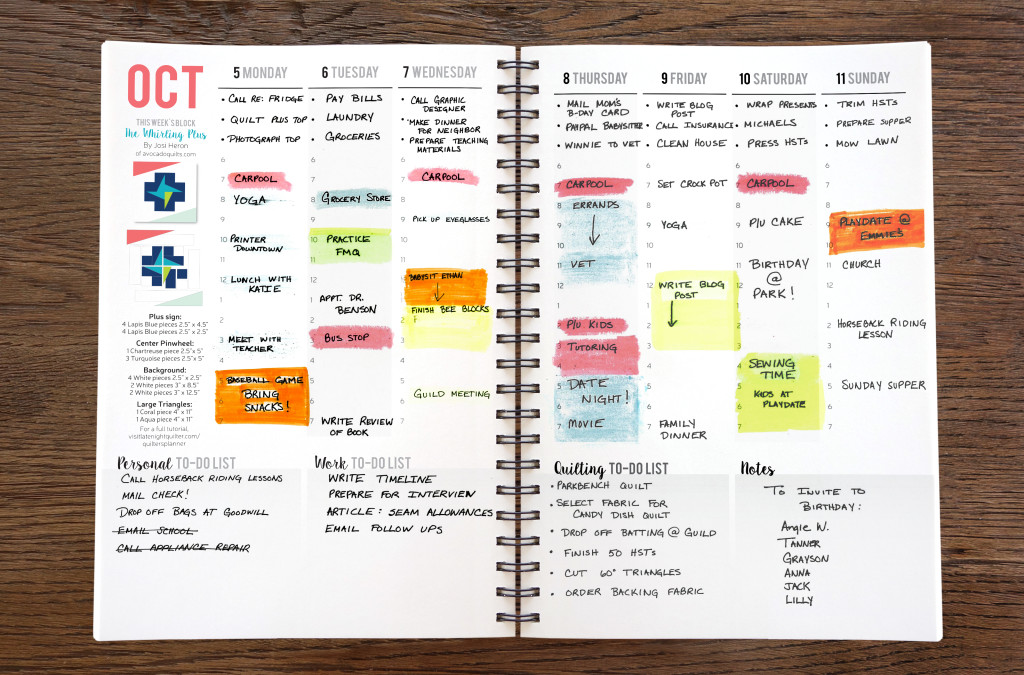 OCT
THIS WEEK'S BLOCK
The Whirling Plus
By Josi Heron
of avocadoquilts.com
Plus sign:
4 Lapis Blue pieces 2.5" x 4.5"
4 Lapis Blue pieces 2.5" x 2.5"
Center Pinwheel:
1 Chartreuse piece 2.5"x 5"
3 Turquoise pieces 2.5"x 5"
Background:
4 White pieces 2.5" x 2.5"
2 White pieces 3" x 8.5"
2 White pieces 3" x 12.5"
Large Triangles:
1 Coral piece 4" x 11"
1 Aqua piece 4" x 11"
For a full tutorial,
visit latenightquilter.com/
quiltersplanner
5 MONDAY
• CALL RE: FRIDGE
• QUILT PLUS TOP
• PHOTOGRAPH TOP
6
7 CARPOOL
8 YOGA
9
10 PRINTER
DOWNTOWN
12 LUNCH WITH
KATIE
2
3 MEET WITH
TEACHER
BASEBALL GAME
BRING
SNACKS!
7
6 TUESDAY
• PAY BILLS
• LAUNDRY
• GROCERIES
6
7
8 GROCERY STORE
9
10 PRACTICE
11 FMQ
12
1 APPT. DR.
BENSON
3 BUS STOP
4
5
6
7 WRITE REVIEW
OF BOOK
7 WEDNESDAY
• CALL GRAPHIC
DESIGNER
• MAKE DINNER
FOR NEIGHBOR
• PREPARE TEACHING
MATERIALS
6
7 CARPOOL
8
9 PICK UP EYEGLASSES
10
11
BABYSIT ETHAN
FINISH BEE BLOCKS
2
3
4
5 GUILD MEETING
6
7
8 THURSDAY
• MAIL MOM'S
B-DAY CARD
• PAYPAL BABYSITTER
• WINNIE TO VET
6
7 CARPOOL
8 ERRANDS
9
10
11 VET
12
1
2 P/U KIDS
3 TUTORING
4
5 DATE
NIGHT!
7 MOVIE
9 FRIDAY
• WRITE BLOG
POST
• CALL INSURANCE
• CLEAN HOUSE
6
7 SET CROCK POT
8
9 YOGA
10
11
12 WRITE BLOG
POST
2
3
4
5
6
7 FAMILY
DINNER
10 SATURDAY
• WRAP PRESENTS
• MICHAELS
• PRESS HSTs
6
7 CARPOOL
8
9 P/U CAKE
10
11 BIRTHDAY
12 @
1 PARK!
2
3
4 SEWING
5 TIME
6 KIDS AT
PLAYDATE
7
11 SUNDAY
• TRIM HSTs
• PREPARE SUPPER
• MOW LAWN
6
7
8
9 PLAYDATE @
10 EMMIE'S
11 CHURCH
12
1
2 HORSEBACK RIDING
3 LESSON
4
5 SUNDAY SUPPER
6
7
Personal TO-DO LIST
CALL HORSEBACK RIDING LESSONS
MAIL CHECK!
DROP OFF BAGS AT GOODWILL
EMAIL SCHOOL
CALL APPLIANCE REPAIR
Work TO-DO LIST
WRITE TIMELINE
PREPARE FOR INTERVIEW
ARTICLE: SEAM ALLOWANCES
EMAIL FOLLOW UPS
Quilting TO-DO LIST
• PARKBENCH QUILT
• SELECT FABRIC FOR
CANDY DISH QUILT
• DROP OFF BATTING @ GUILD
• FINISH 50 HSTs
• CUT 60° TRIANGLES
• ORDER BACKING FABRIC
Notes
TO INVITE TO
BIRTHDAY:
Angie W.
TANNER
GRAYSON
ANNA
JACK
LILLY